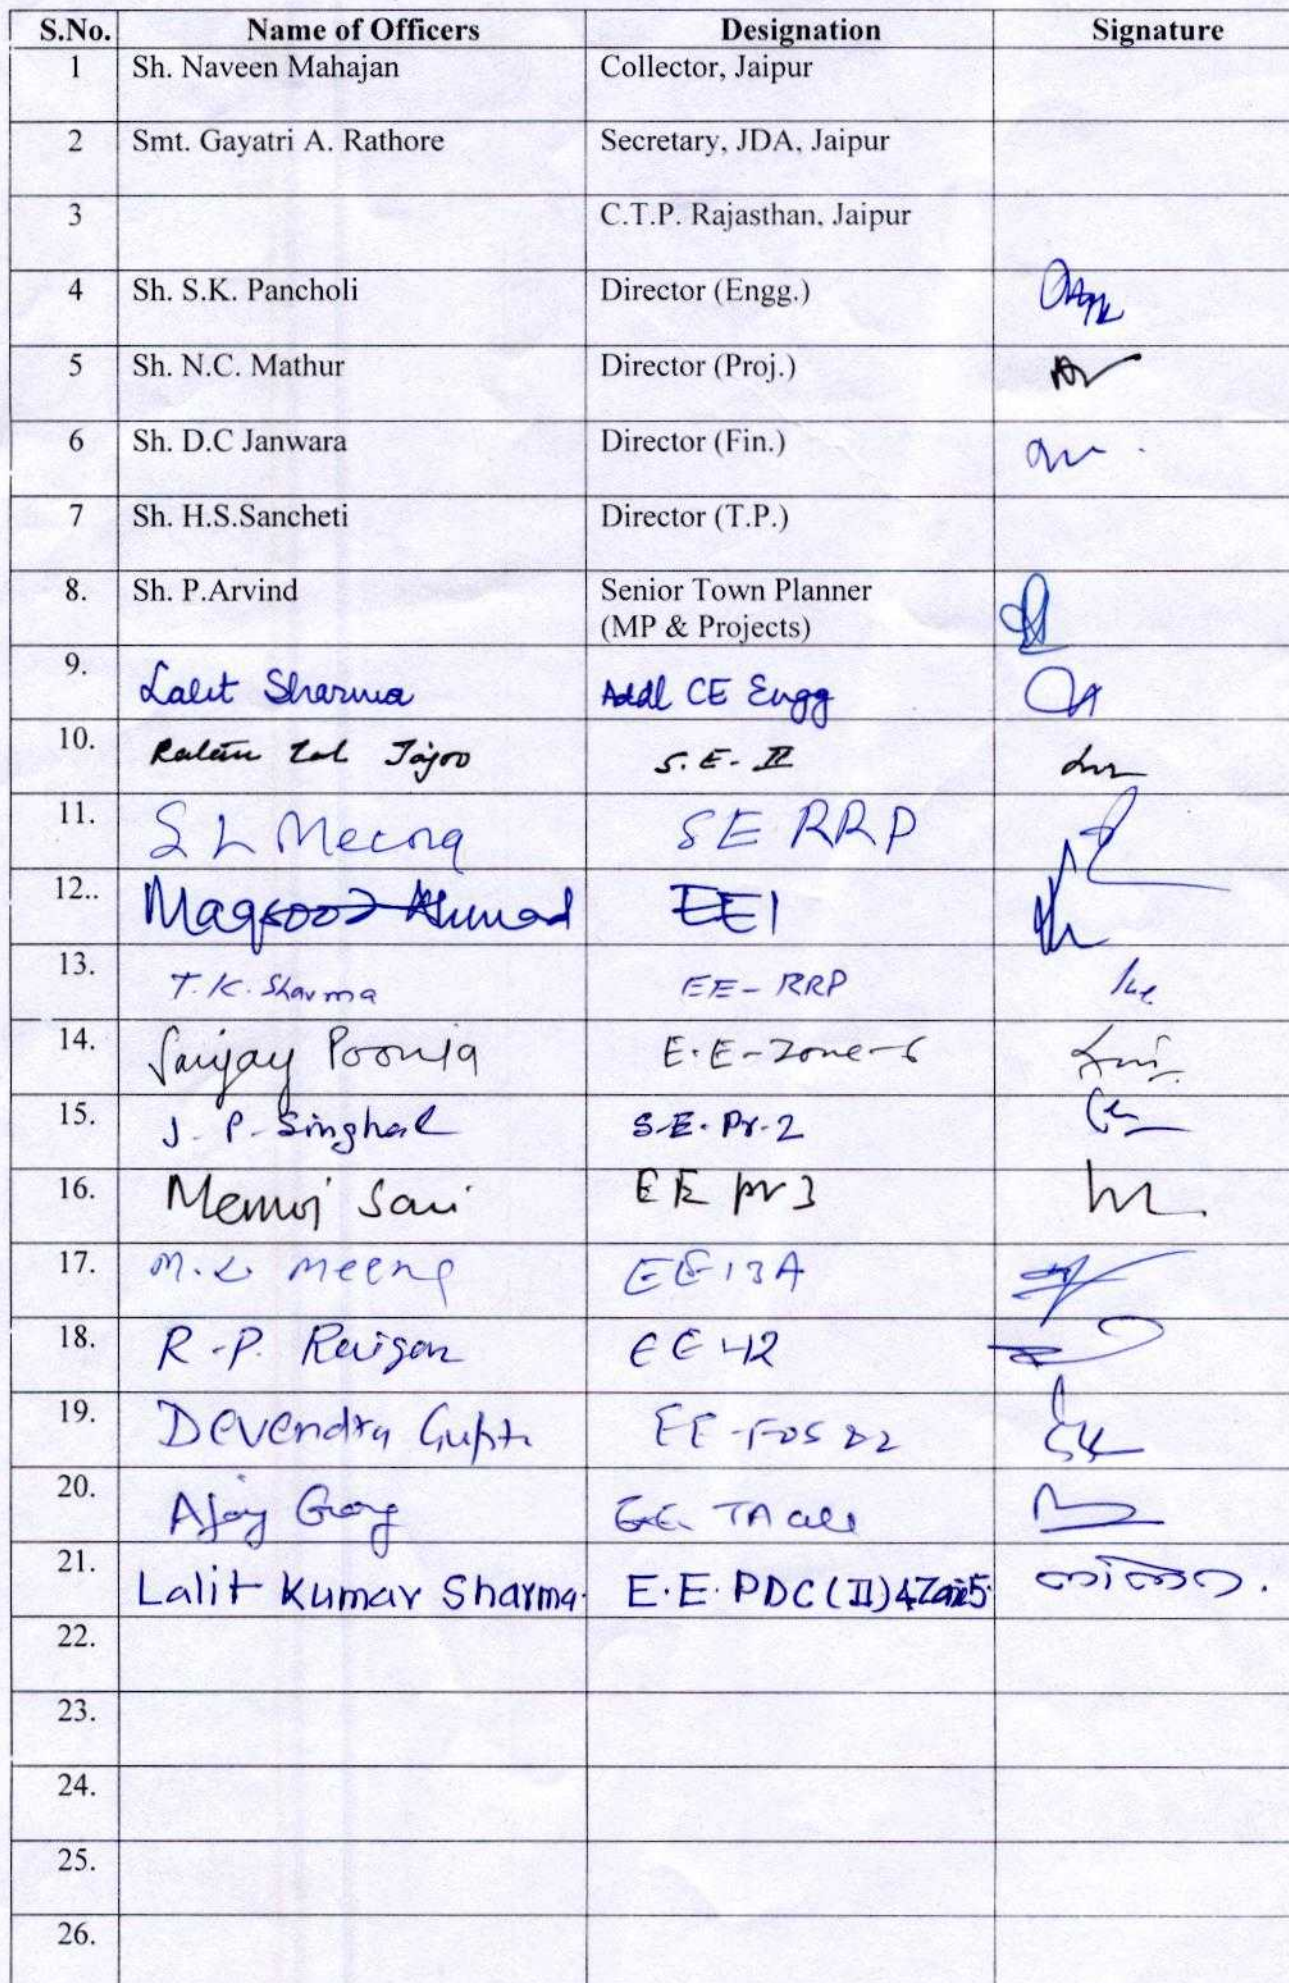 S.No. Name of Officers Designation Signature
1 Sh. Naveen Mahajan Collector, Jaipur
2 Smt. Gayatri A. Rathore Secretary, JDA, Jaipur
3 C.T.P. Rajasthan, Jaipur
4 Sh. S.K. Pancholi Director (Engg.)
5 Sh. N.C. Mathur Director (Proj.)
6 Sh. D.C Janwara Director (Fin.)
7 Sh. H.S.Sancheti Director (T.P.)
8. Sh. P.Arvind Senior Town Planner
(MP & Projects)
9. Lalit Sharma Addl CE Engg
10. Lal Jajoo S.E-II
11. S L Meena SE RRP
12.. Maqsood Ahmad EE1
13. T.K. Sharma EE-RRP
14. Sanjay Poonia E.E-Zone-6
15. J.P. Singhal S.E. Pr-2
16. EE pr 3
17. M.L Meena EE 13A
18. R.P. EE 12
19. Devendra Gupta EE
20. Ajay Garg E.E. TA
21. Lalit Kumar Sharma. E.E. PDC(II)
22.
23.
24.
25.
26.